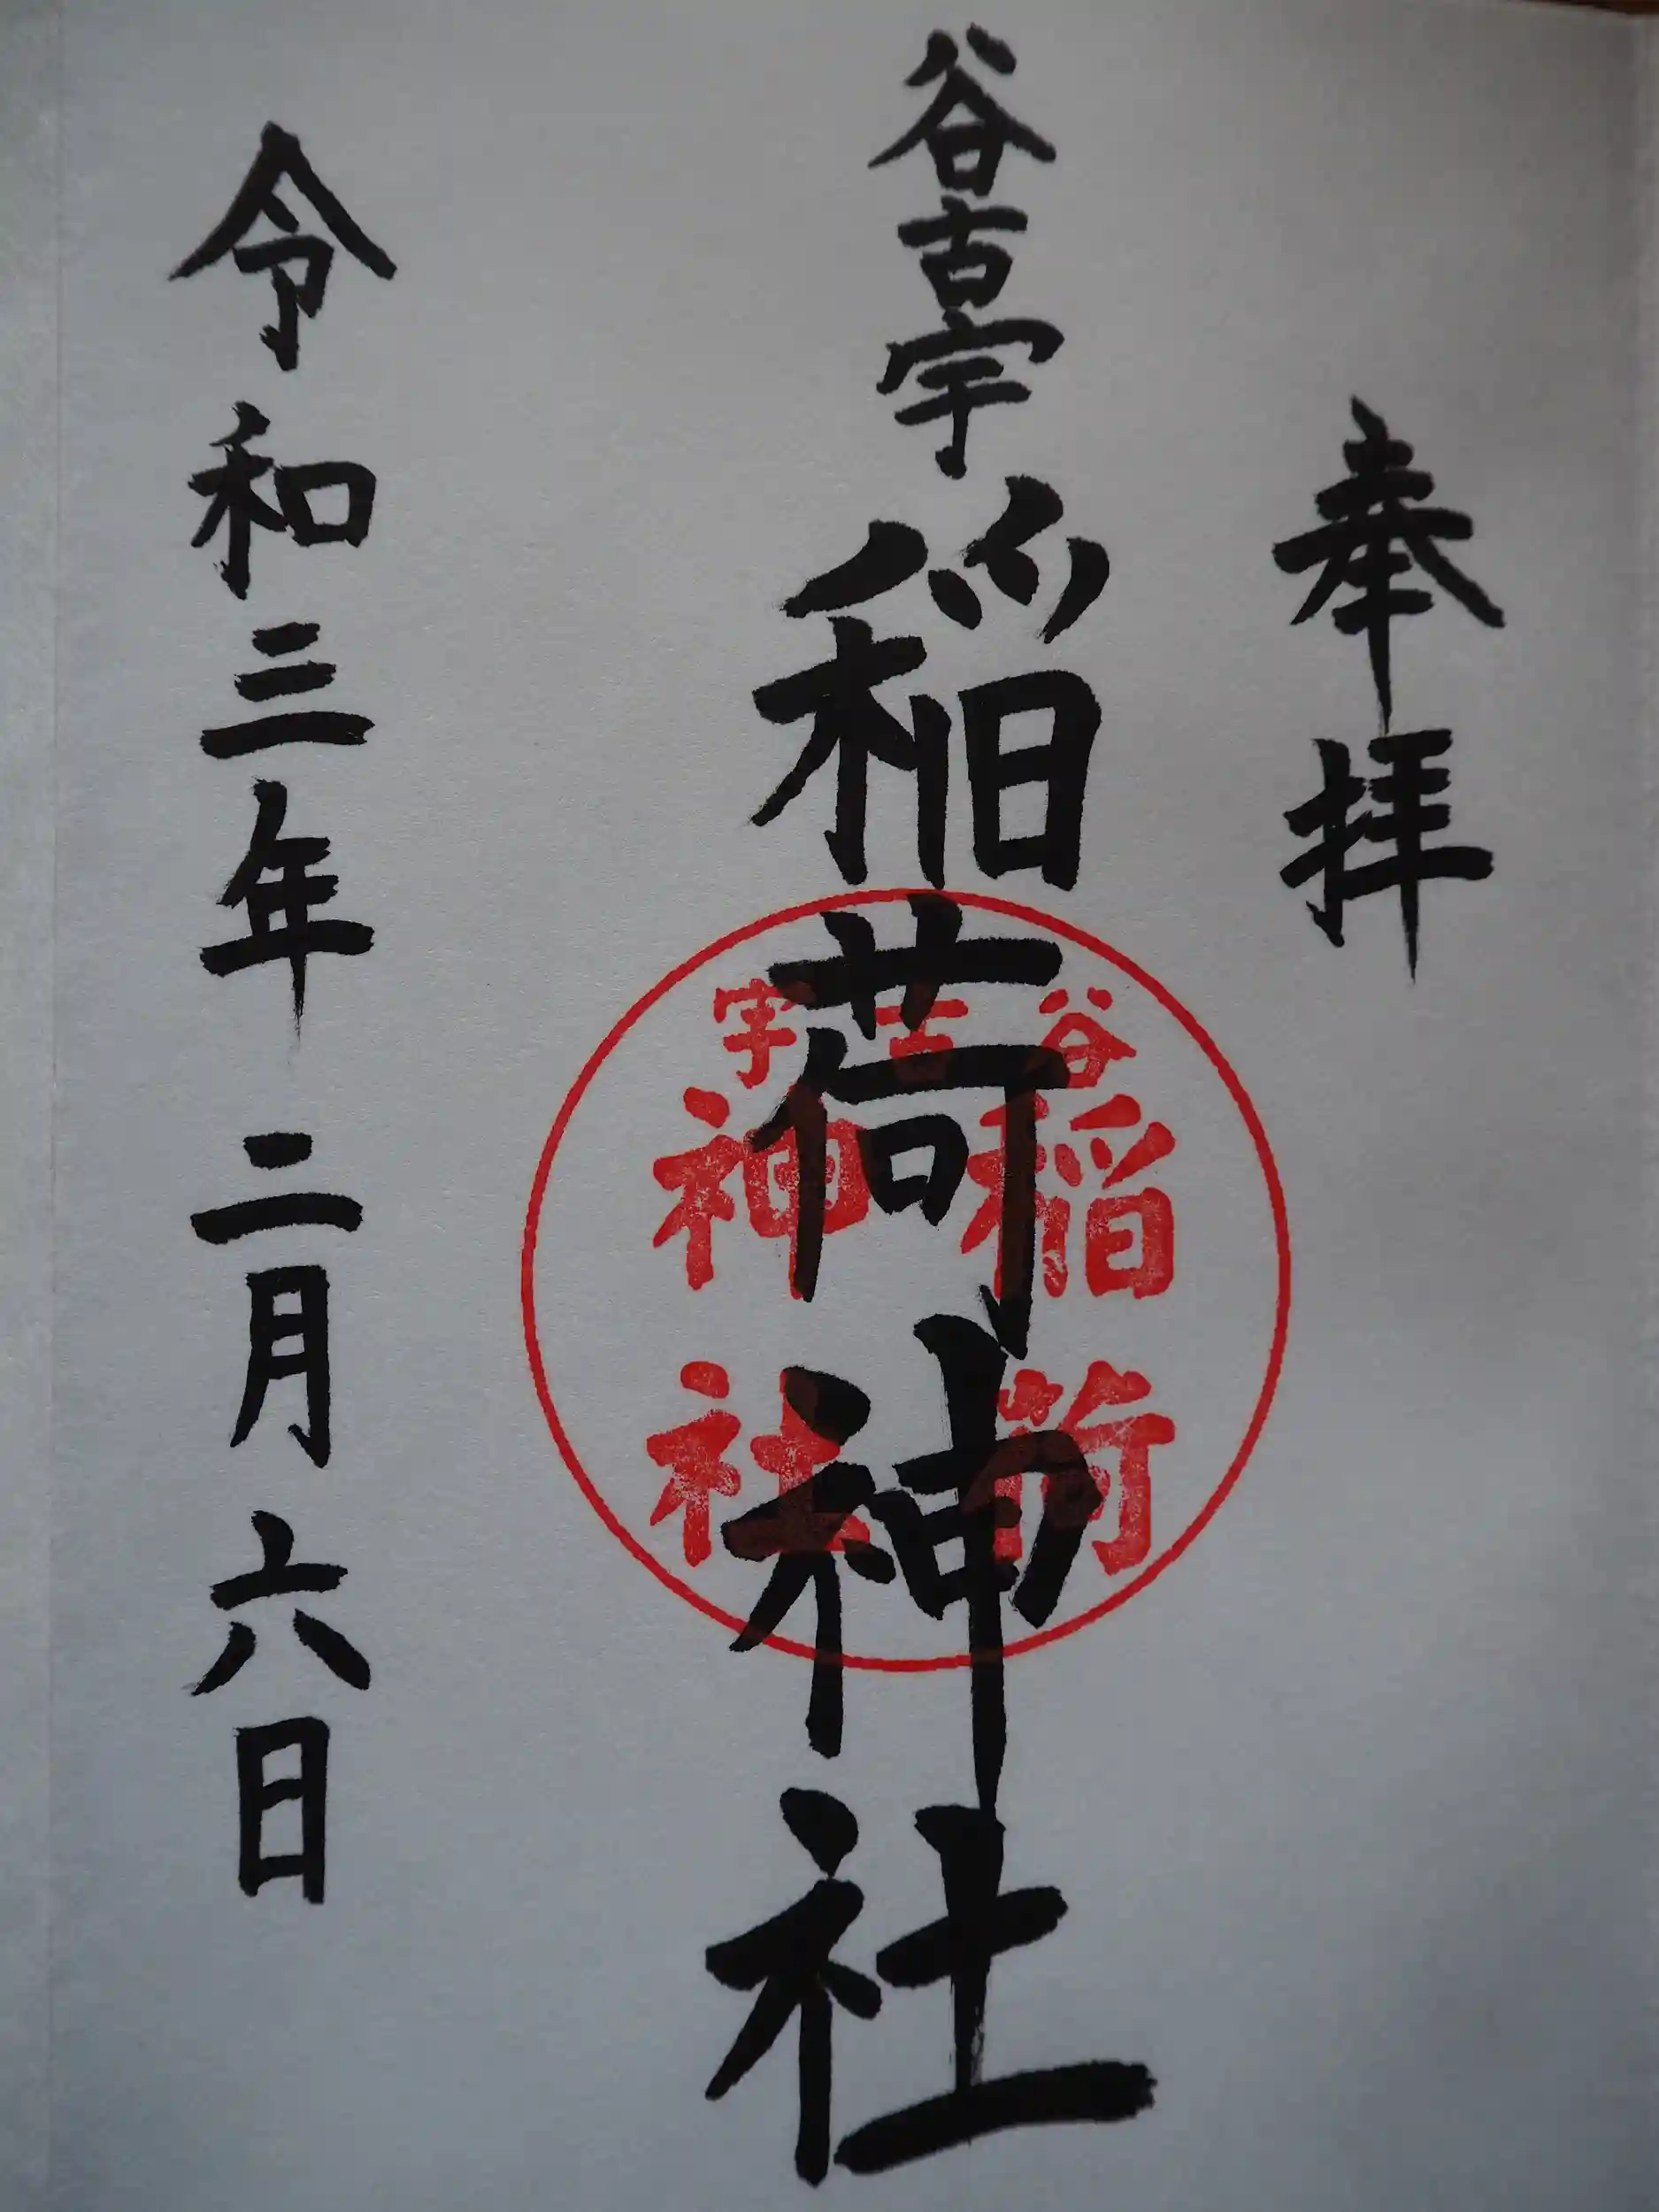 奉拝
谷古宇稲荷神社
谷古宇
稲荷
神社
令和三年二月六日